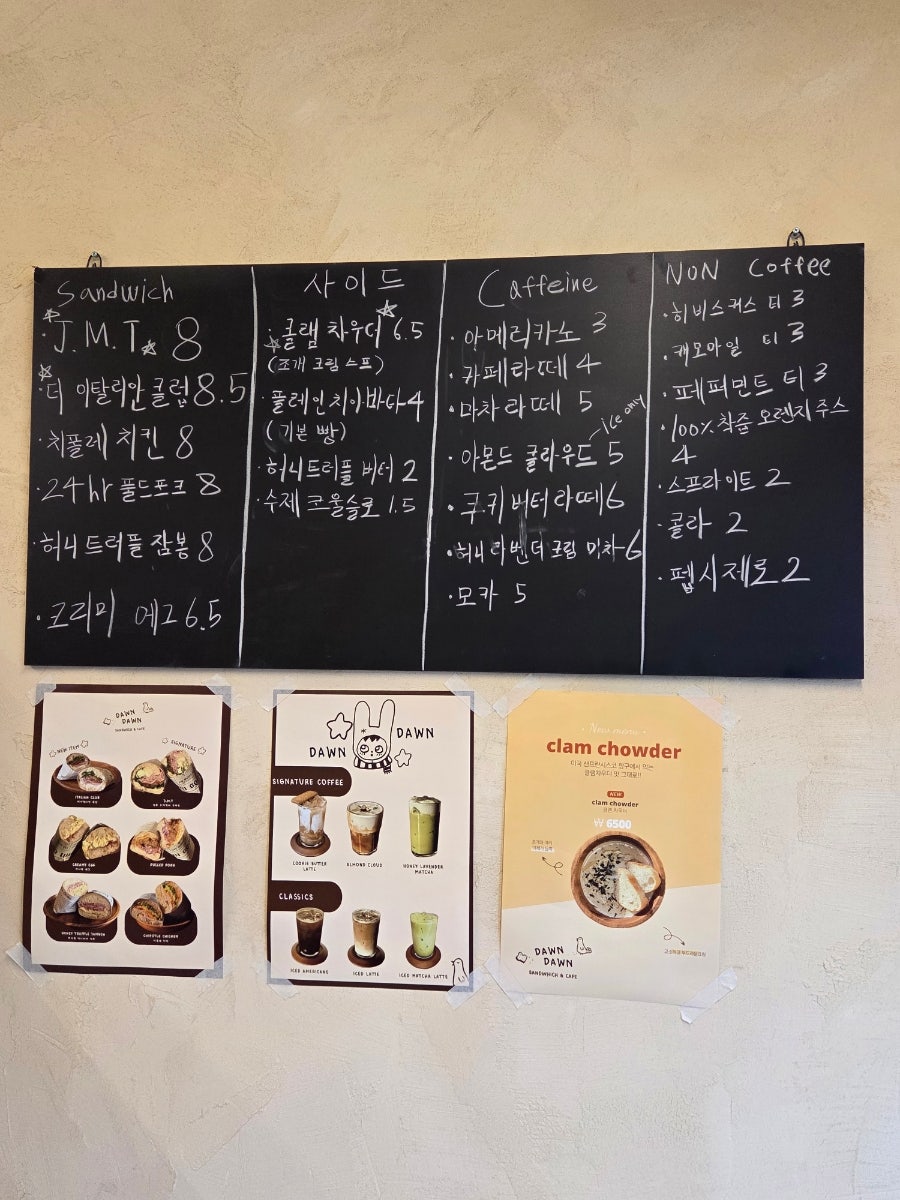 Sandwich
J.M.T. 8
더 이탈리안 클럽 8.5
·치폴레 치킨 8
·24hr 풀드포크 8
·허니 트러플 잠봉 8
·크리미 에그 6.5
사이드
·클램 차우더 6.5
(조개 크림 스프)
·플레인 치아바타-4
(기본 빵)
·허니트러플 버터 2
·수제 코울슬로 1.5
Caffeine
·아메리카노 3
·카페라떼 4
·마차라떼 5
·아몬드 클라우드 5
-ice only
·쿠키버터라떼 6
·허니라벤더크림 마차-6
·모카 5
NON Coffee
·히비스커스 티 3
·캐모마일 티 3
·페퍼민트 티 3
·100% 착즙 오렌지 주스
4
·스프라이트 2
·콜라 2
·펩시제로 2
DAWN
DAWN
SANDWICH & CAFE
NEW ITEM
SIGNATURE
ITALIAN CLUB
J.M.T
CREAMY EGG
PULLED PORK
HONEY TRUFFLE JAMBON
CHIPOTLE CHICKEN
DAWN
DAWN
SIGNATURE COFFEE
COOKIE BUTTER
LATTE
ALMOND CLOUD
HONEY LAVENDER
MATCHA
CLASSICS
ICED AMERICANO
ICED LATTE
ICED MATCHA LATTE
· New menu ·
clam chowder
미국 샌프란시스코 항구에서 먹는
클램차우더 맛 그대로!!
NEW
clam chowder
클램 차우더
₩ 6500
DAWN
DAWN
SANDWHICH & CAFE